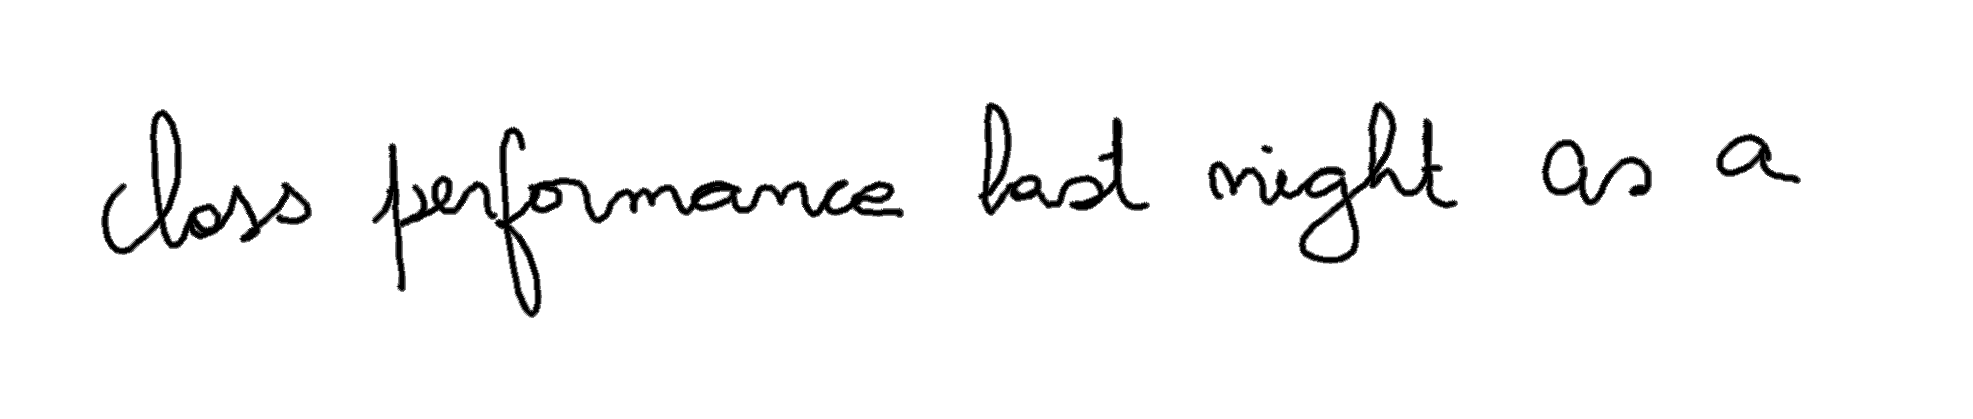 class performance last night as a